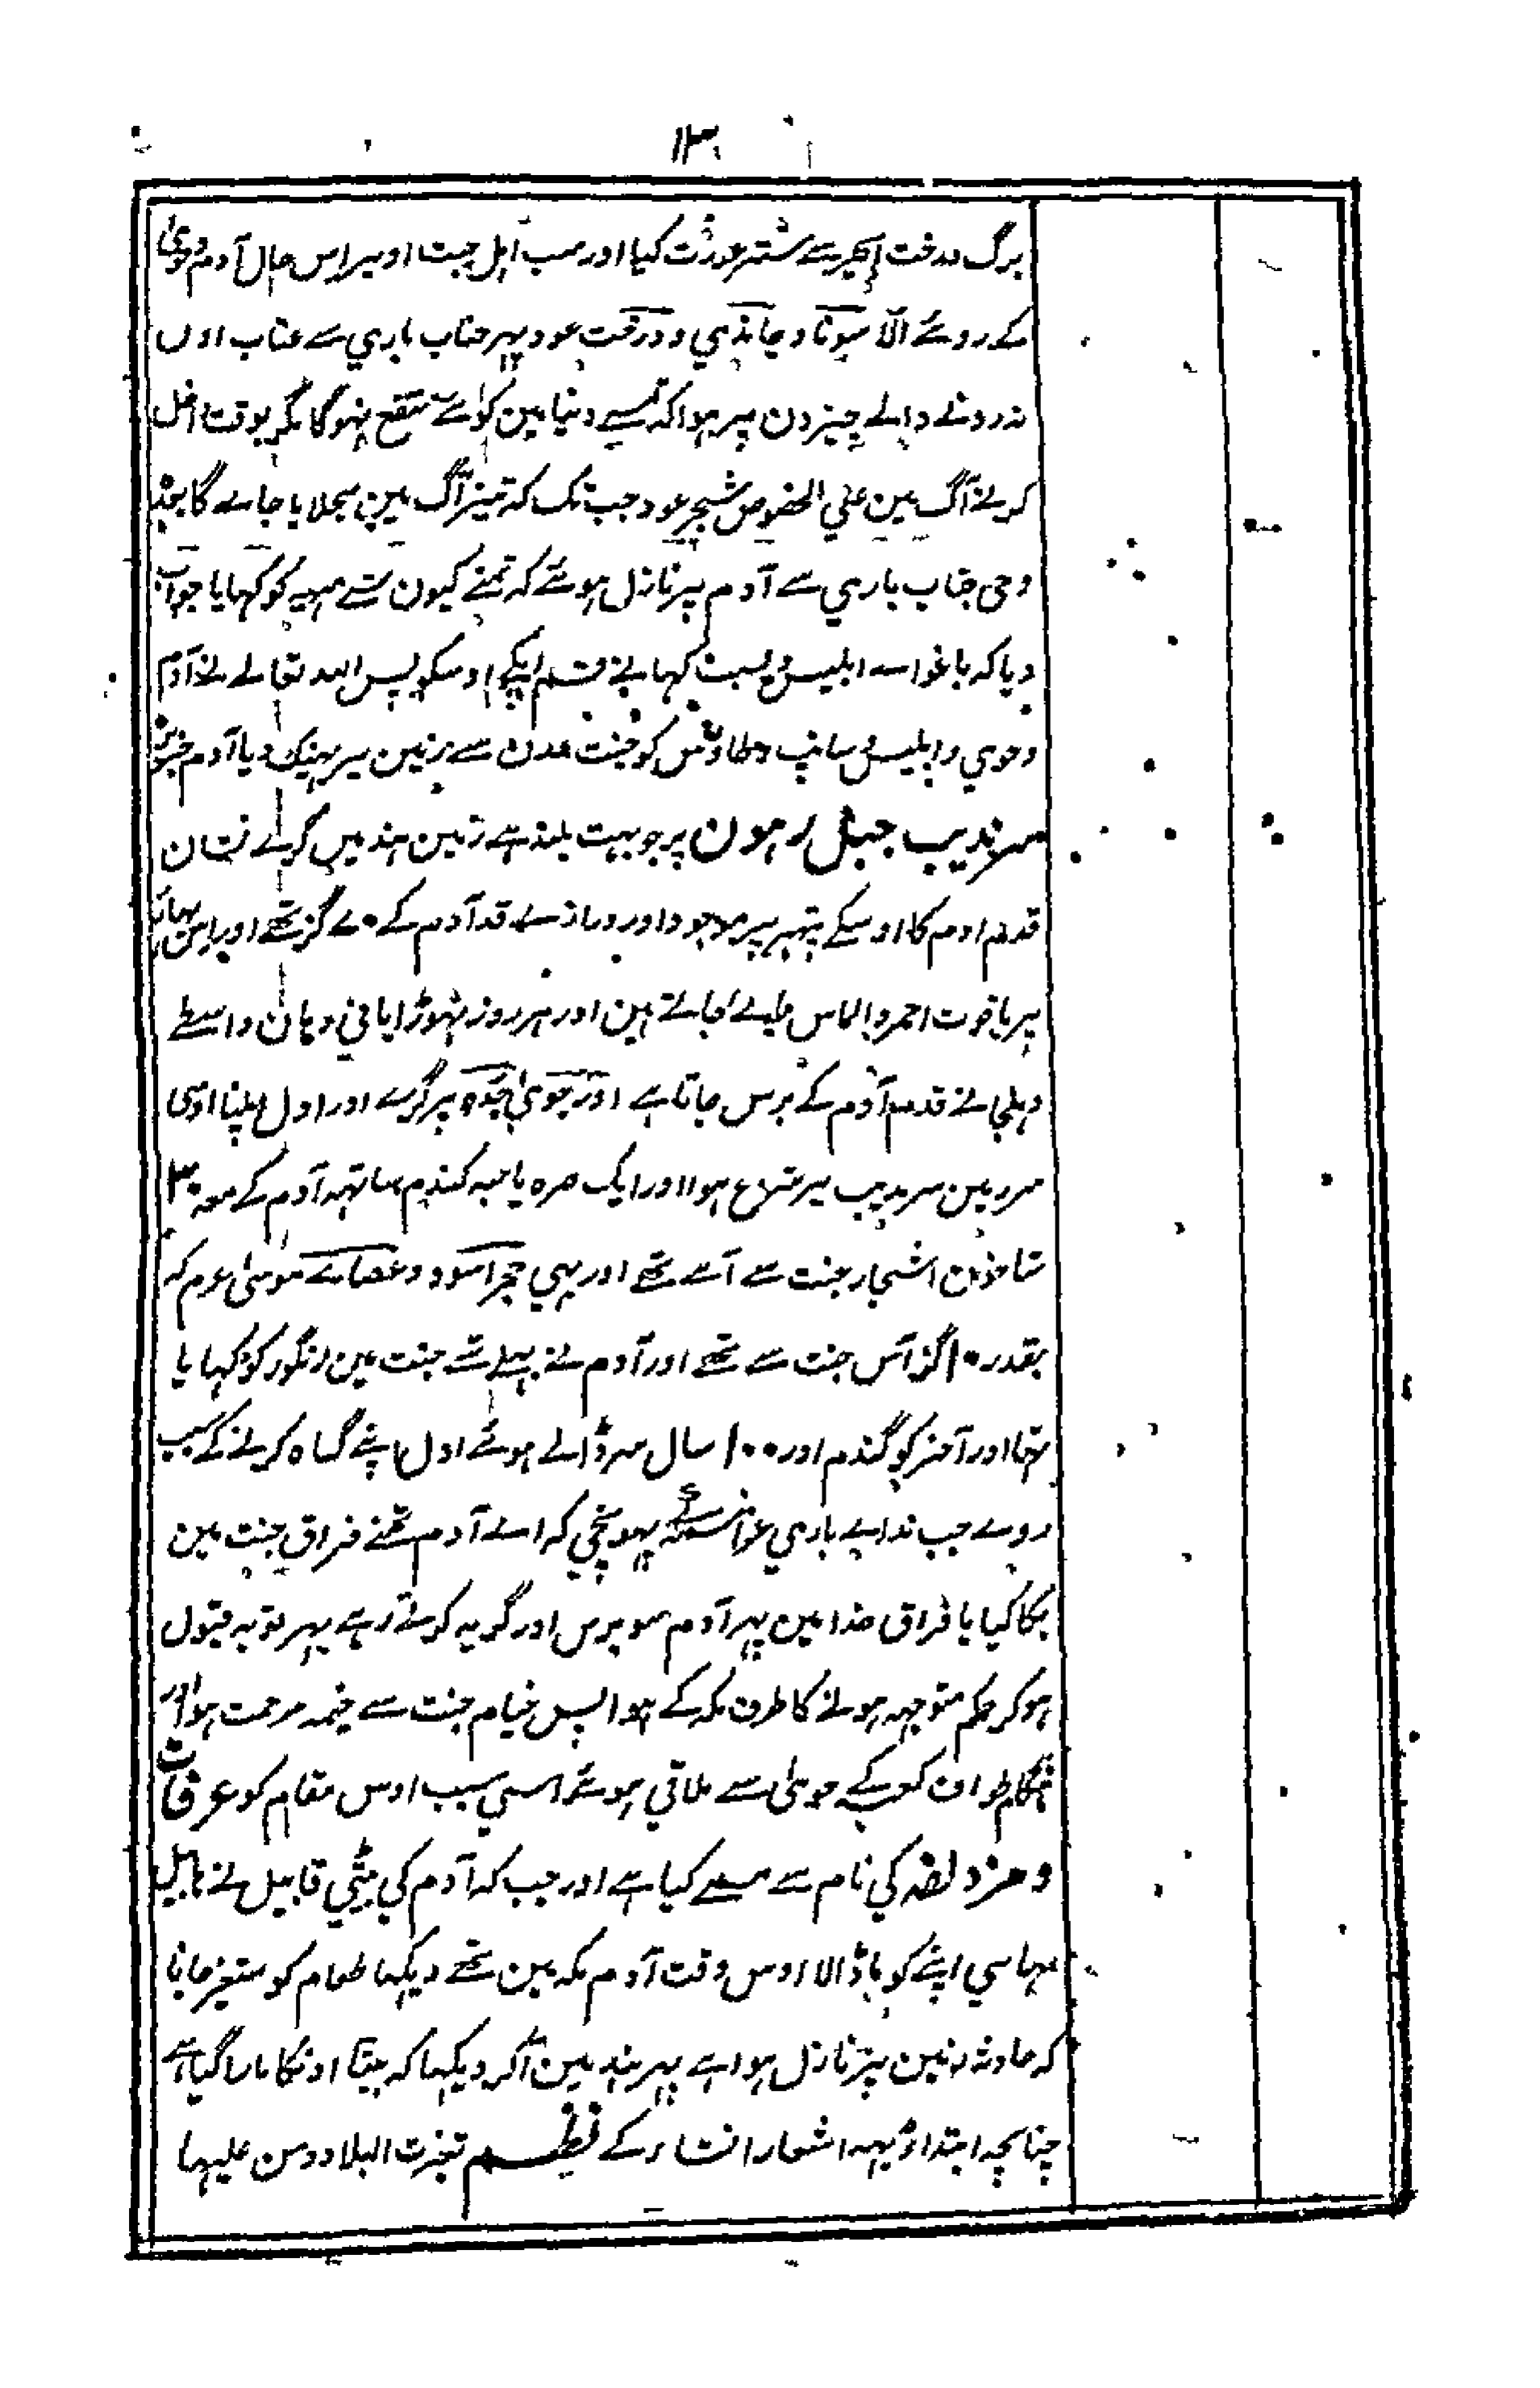 ۱۳
برگ درخت انجیر سے ستر عورت کیا اور سب اہل جنت اوپر اس حال آدم و حویٰ
کے روئے الّا سونا و چاندی و درخت عود پہر جناب باری سے عتاب اون
نہ رونے والے چیزون پر ہوا کہ تمسے دنیا مین کوئے منتفع نہوگا مگر بوقت داخل
کرنے آگ مین علی الخصوص شجر عود جب تک کہ تمیز آگ مین نجلایا جاے گا بعد
وحی جناب باری سے آدم پر نازل ہوئے کہ تمنے کیون شے منہیہ کو کہایا جواب
دیا کہ باغواے ابلیس و بسبب کہانے قسم اپکی اوسکو پس اللہ تعالے نے آدم
و حوی و ابلیس و سانپ و طاوٗس کو جنت عدن سے زمین پر پہینک دیا آدم جزیرہ
سرندیب جبل رہون پر جو بہت بلند ہے زمین ہند مین گرے نشان
قدم ادم کا اوسکے پتہر پر موجود اور درازے قد آدم کے ۷۰ گز تہے اور اس پہاڑ
پر یاقوت احمر و الماس ملے جاتے ہین اور ہر روز تہوڑا پانی وہان واسطے
دہلجانے قدم آدم کے برس جاتا ہے اور حویٰ جدہ پر گرے اور اول اپنا اوسی
سرزمین سرندیب پر متفرع ہوا اور ایک صرہ یا حبہ گندم ساتہہ آدم کے معہ ۳۰
شاخون اشجار جنت سے آے تہے اور یہی حجر اسود و عصاے موسیٰ عوم کہ
بقدر ۱۰ گز آس جنت سے تہے اور آدم نے پہلے شے جنت مین انگور کو کہایا
تہا اور آخر کو گندم اور ۱۰۰ سال سر ڈالے ہوئے اول اپنے گناہ کرنے کے سبب
روے جب نداے باری عز اسمہ پہونچی کہ اے آدم تمنے فراق جنت مین
بکا کیا یا فراق خدا مین پہر آدم سو برس اور گریہ کرتے رہے پہر توبہ قبول
ہوکر حکم متوجہہ ہونے کا طرف مکہ کے ہوا پس خیام جنت سے خیمہ مرحمت ہوا اور
ہنگام طواف کعبہ کے حویٰ سے ملاقی ہوئے اسی سبب اوس مقام کو عرفات
و مزدلفہ کی نام سے مسمے کیا ہے اور جب کہ آدم کی بیٹی قابیل نے ہابیل
بہاسی اپنے کو مار ڈالا اوس وقت آدم مکہ مین تہے دیکہا طعام کو متغیر جانا
کہ حادثہ زمین پر نازل ہوا ہے پہر ہند مین آکر دیکہا کہ بیٹا اونکا مارا گیا ہے
چنانچہ ابتداءً یہہ اشعار انشاء کے نظم تغیرت البلاد و من علیہا